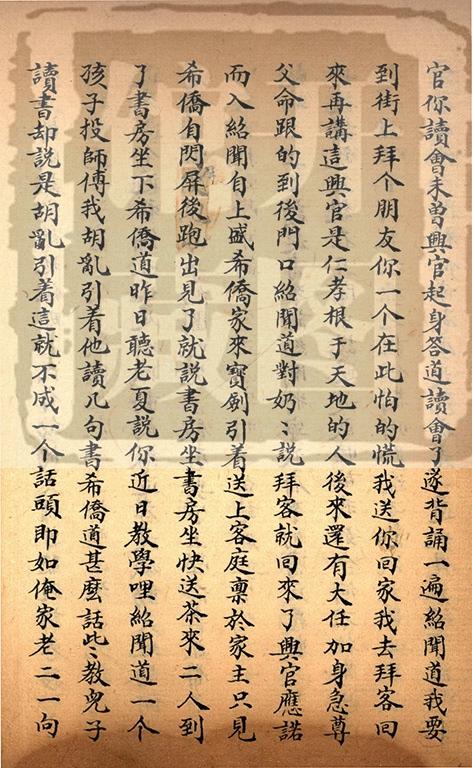 官你讀會未曾興官起身答道讀會了遂背誦一遍紹聞道我要
到街上拜个朋友你一个在此怕的慌我送你回家我去拜客回
來再講這興官是仁孝根于天地的人後來還有大任加身急尊
父命跟的到後門口紹聞道對奶〻說拜客就回來了興官應諾
而入紹聞自上盛希僑家來寶劍引着送上客庭禀於家主只見
希僑自閃屏後跑出見了就説書房坐書房坐快送茶來二人到
了書房坐下希僑道昨日聽老夏説你近日教學哩紹聞道一个
孩子投師傅我胡亂引着他讀几句書希僑道甚麼話此〻教兒子
讀書却説是胡亂引着這就不成一个話頭即如俺家老二一向